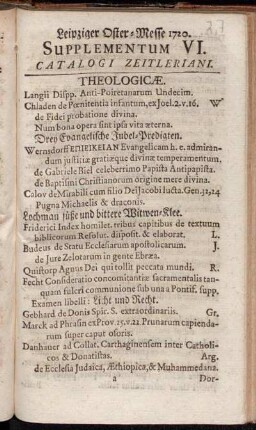 Leipziger Oster-Messe 1720.
SUPPLEMENTUM VI.
CATALOGI ZEITLERIANI.
THEOLOGICÆ.
Langii Disp. Anti-Poiretanarum Undecim.
Chladen de Pœnitentia infantum, ex Joel. 2. v. 16. W
de Fidei probatione divina.
Num bona opera sint ipsa vita æterna.
Drey Evangelische Jubel-Predigten.
Wernsdorff ΕΠΙΕΙΚΕΙΑΝ Evangelicam h. e. admiran-
dum justitiæ gratiæque divinæ temperamentum.
de Gabriele Biel celeberrimo Papista Antipapista.
de Baptismi Christianorum origine mere divina.
Calov de Mirabili cum filio Dei Jacobi lucta. Gen. 32,24
Pugna Michaelis & draconis.
Lochman süße und bittere Witwen-Klee.
Friderici Index homilet. tribus capitibus de textuum
biblicorum Resolut. disposit. & elaborat. L.
Budeus de Statu Ecclesiarum apostolicarum. J.
de Jure Zelotarum in gente Ebræa.
Quistorp Agnus Dei qui tollit peccata mundi. R.
Fecht Consideratio concomitantiæ sacramentalis tan-
quam fulcri communione sub una a Pontif. supp.
Examen libelli: Licht und Recht.
Gebhard de Donis Spir. S. extraordinariis. Gr.
Marck ad Phrasin ex Prov. 25. v. 22 Prunarum capienda-
rum super caput osoris.
Danhaner ad Collat. Carthaginensem inter Catholi-
cos & Donatistas. Arg.
de Ecclesia Judaica, Æthiopica, & Muhammedana.
a Dor-